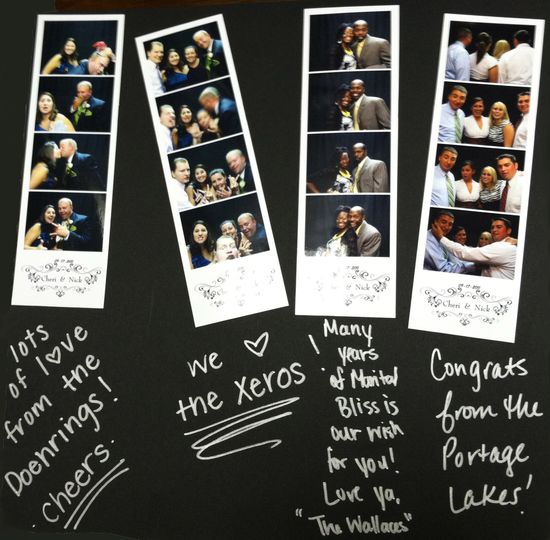 Cheri & Nick
Cheri & Nick
09.17.2011
Cheri & Nick
Cheri & Nick
lots
of love
from the
Doehrings!
cheers.
we ♡
the xeros!
Many
years
of Marital
Bliss is
our wish
for you!
Love ya,
"The Wallaces"
Congrats
from the
Portage
Lakes!